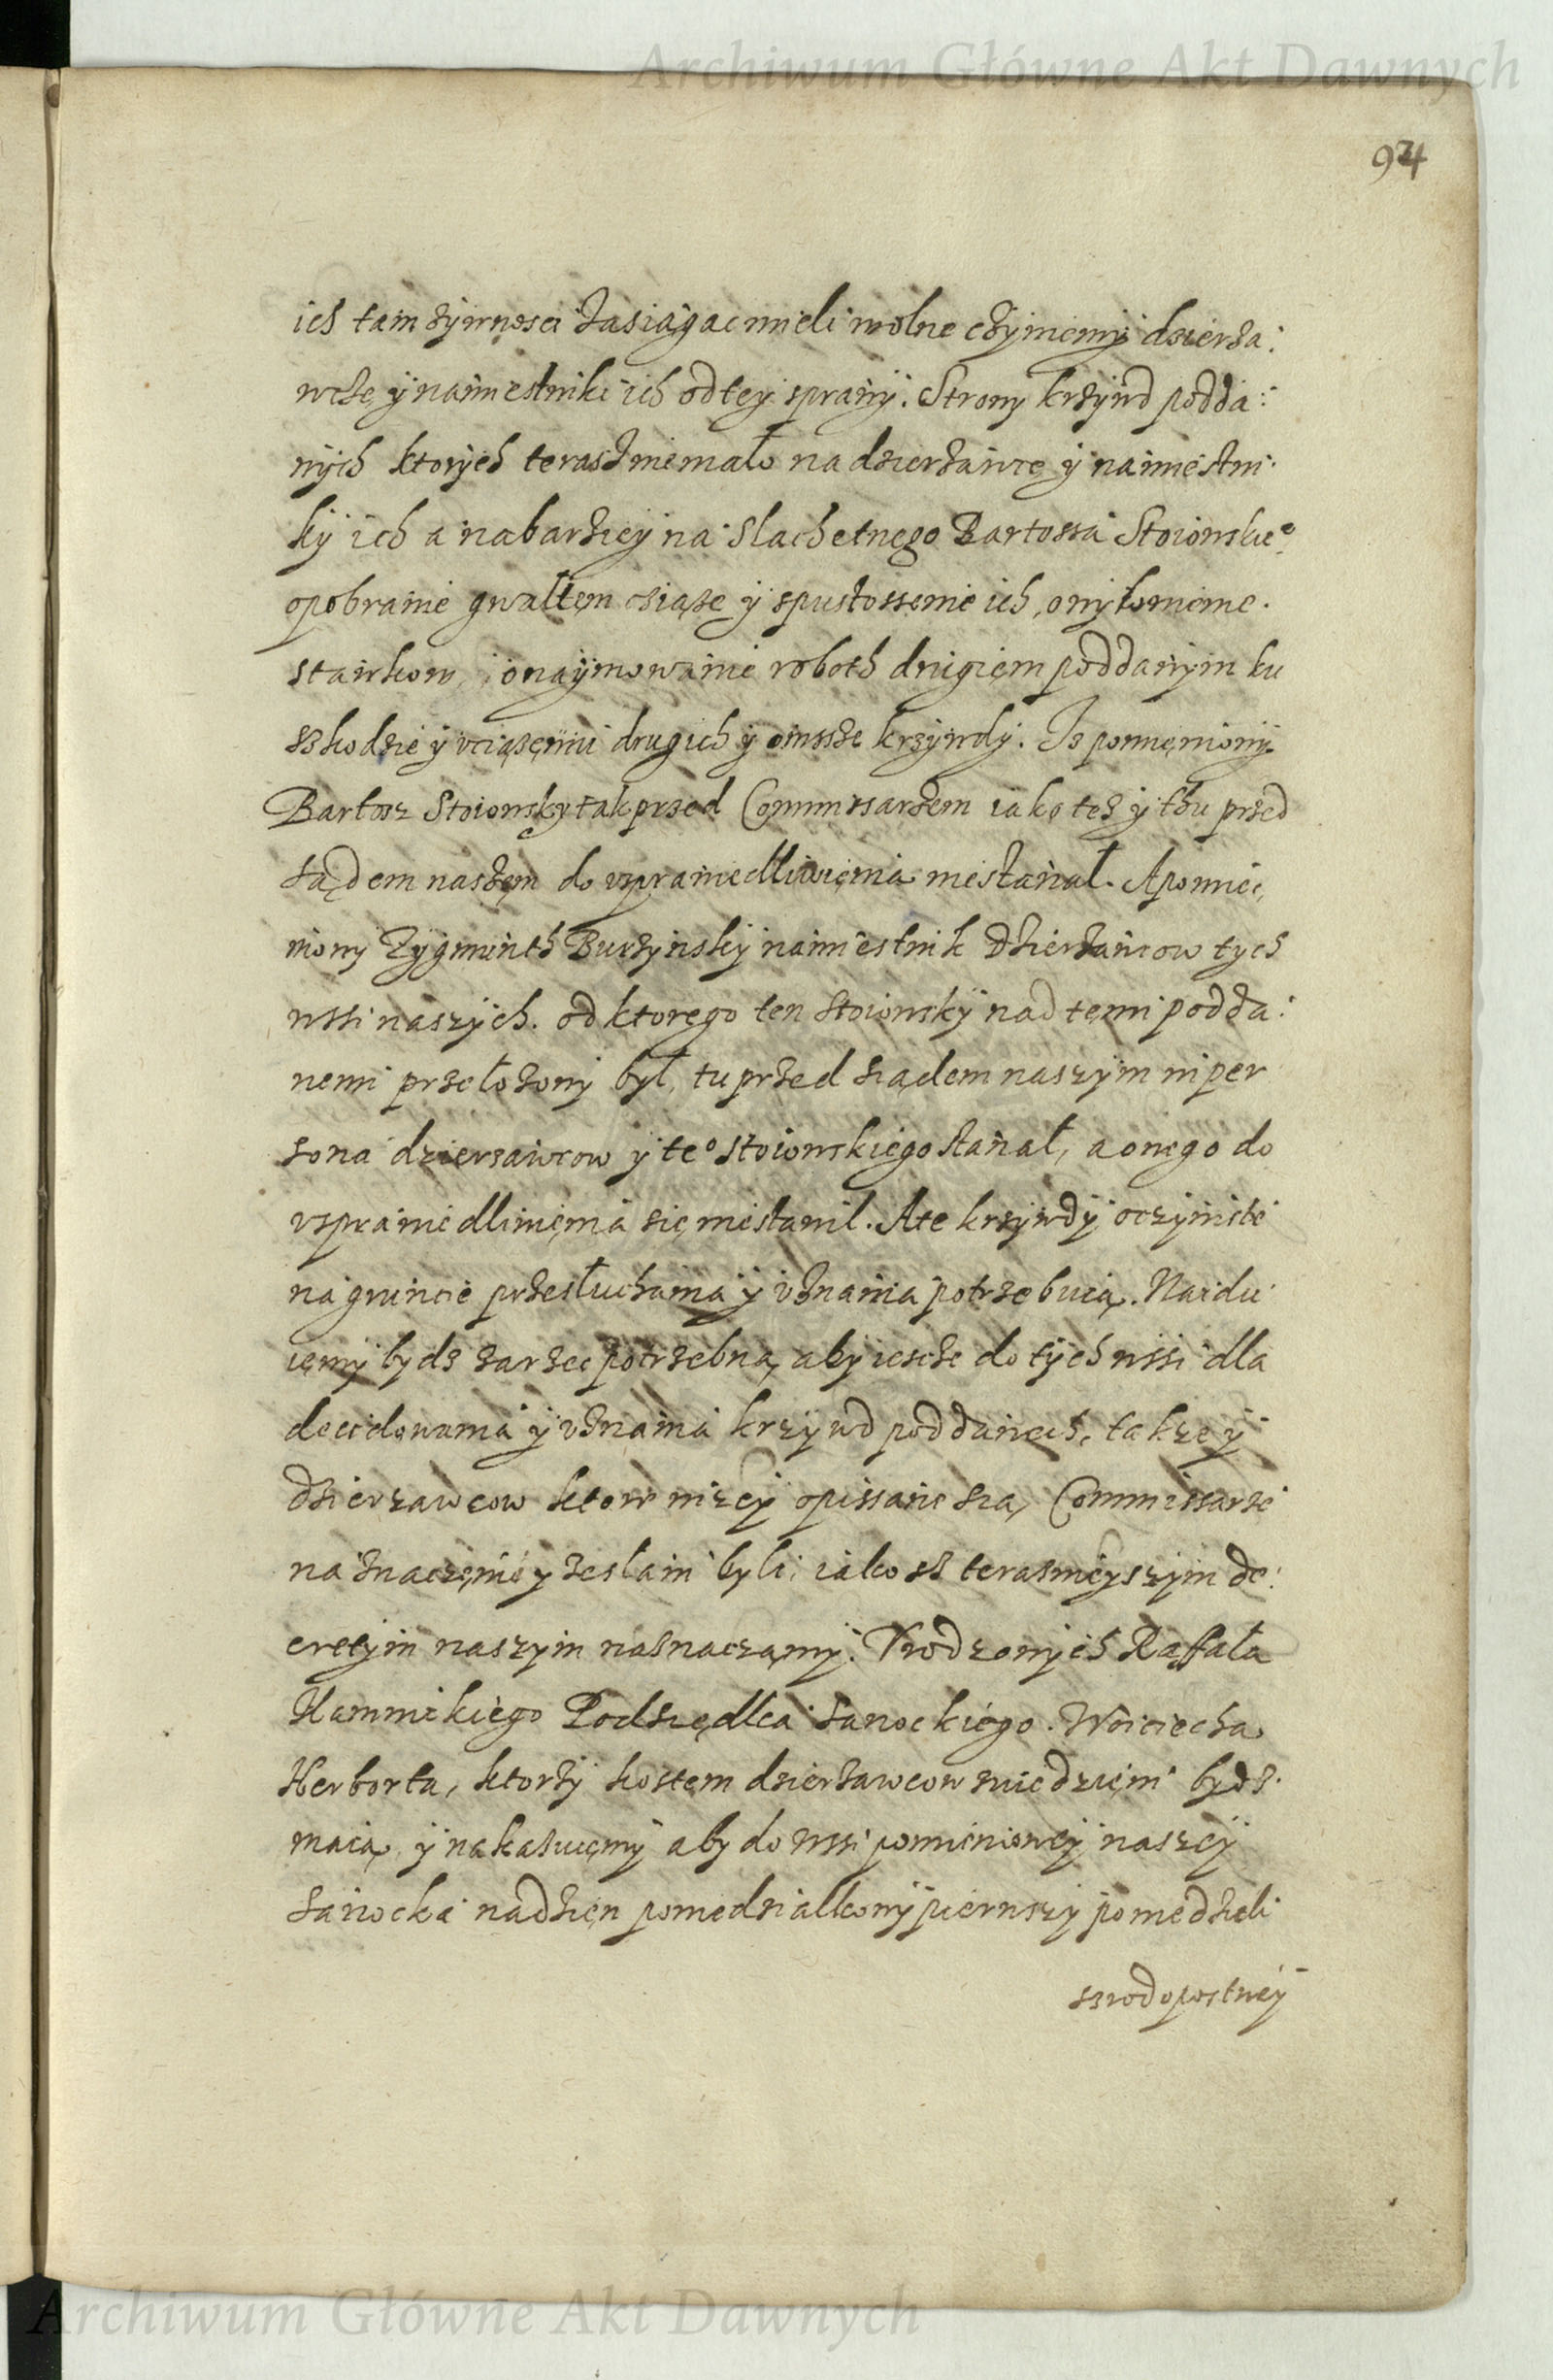 Archiwum Główne Akt Dawnych
94
ich tam zÿwnosci zasiągac mieli wolne czÿniemÿ dzierza:
wcze ÿ namiestniki ich od teÿ sprawÿ. Strony krzÿwd podda:
nÿch ktorÿch teraz niemało na dzierzawce ÿ namiestni
kÿ ich a nabarzieÿ na Slachetnego Bartossa Stoionskie°
o pobranie gwałtem ÿ spustossenie ich, o
stawkow, o naÿmowanie roboth drugiem poddanÿm ku
szkodzie ÿ vciązeniu drugich ÿ o inssze krzÿwdÿ. Iz pomieniony
Bartosz Stoionskÿ tak przed Commissarzem iako tez ÿ thu przed
sądem naszem do vsprawiedliwienia nie stanał. A pomie
niony Zÿgmunth Burzÿnskÿ namiestnik dzierzawcow tych
wssi naszÿch. od ktorego ten Stoionskÿ nad temi podda:
nemi przełozonÿ był, tu przed sądem naszÿm w per
sona dzierzawcow ÿ te° Stoionskiego stanał, a onego do
vsprawiedliwienia się nie stawil. A te krzÿwdÿ oczÿwiste
na gruncie przesłuchania ÿ vznania potrzebuią. Naidu
iemÿ bÿdz rzecz potrzebną, abÿ iescze do tÿch wssi dla
decidowania ÿ vznania krzÿwd poddanech, takze ÿ
dzierzawcow ktore nizeÿ opissane są, Commissarze
naznaczenie ÿ zesłani byli: iakosz teraznieÿszÿm de:
cretÿm naszÿm naznaczamÿ. Vrodzonÿch Raffała
Podsędka Sanockiego. Woiciecha
Herborta, ktorzÿ kostem dzierzawcow zwiedzieni bydz
maią, ÿ nakazuiemÿ abÿ do wssi pomienioneÿ naszeÿ
Sanocka na dzien poniedziałkowÿ pierwszÿ po niedzieli
srodopostneÿ
Archiwum Główne Akt Dawnych